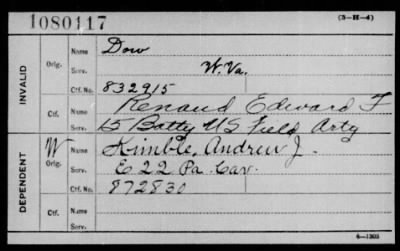 1080117
(3-H-4)
INVALID
Orig.
Name Dow
Serv. W. Va.
Ctf. No. 832915
Ctf.
Name Renaud Edward F
Serv. 15 Batty US Field Arty
DEPENDENT
W
Orig.
Name Kimble, Andrew J.
Serv. E 22 Pa. Cav.
Ctf. No. 872830
Ctf.
Name
Serv.
6-1303